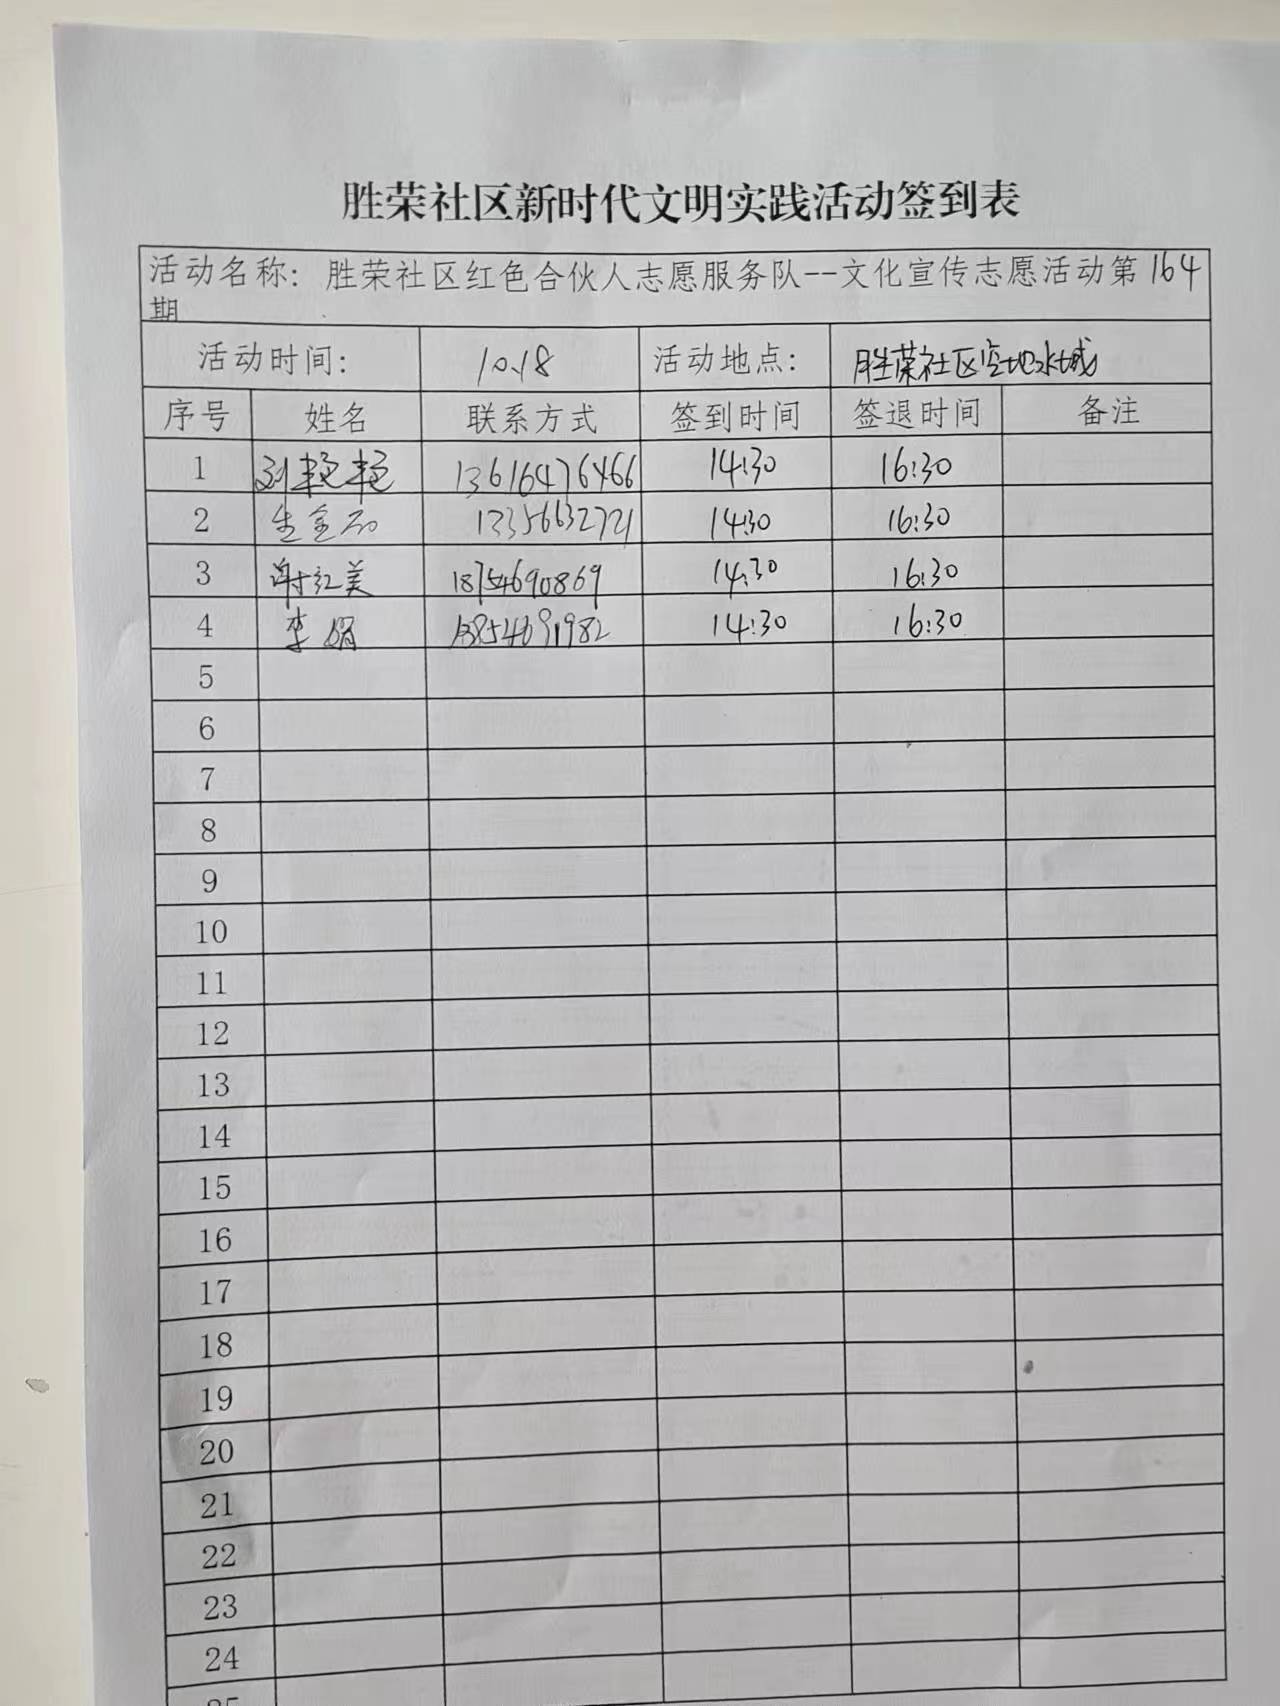 胜荣社区新时代文明实践活动签到表
活动名称：胜荣社区红色合伙人志愿服务队--文化宣传志愿活动第164
期
活动时间： 10.18 活动地点： 胜荣社区空地水城
序号 姓名 联系方式 签到时间 签退时间 备注
1 刘艳艳 13616476466 14:30 16:30
2 14:30 16:30
3 谢红美 18754690869 14:30 16:30
4 李娟 13854691982 14:30 16:30
5
6
7
8
9
10
11
12
13
14
15
16
17
18
19
20
21
22
23
24